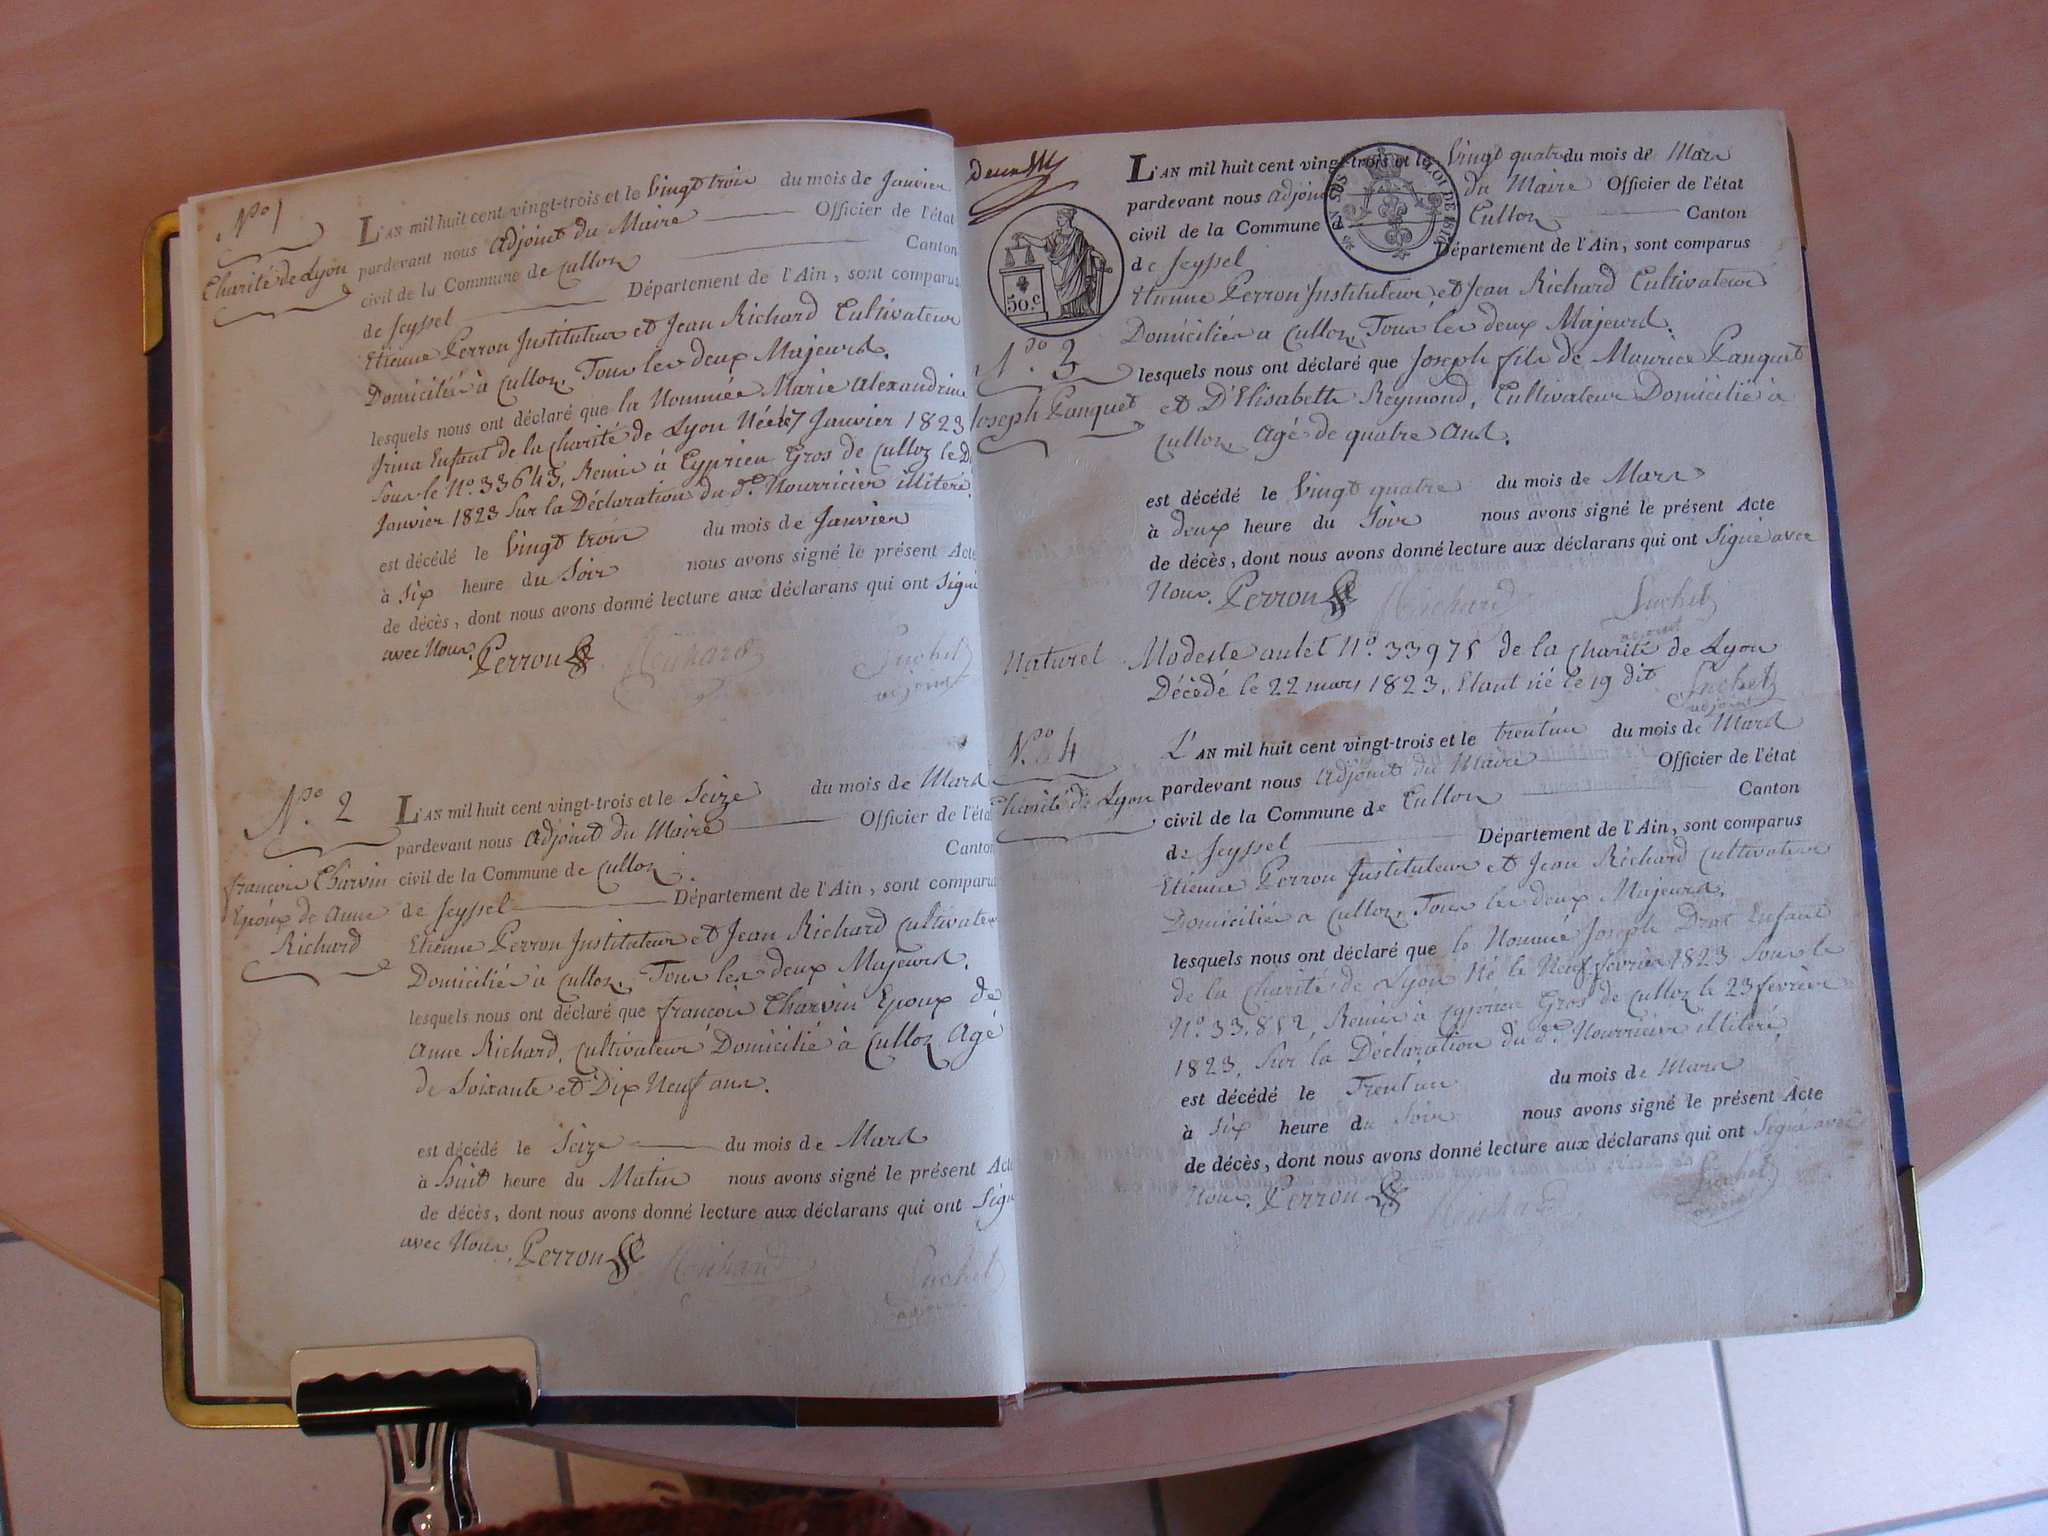 N.ro 1
Charité de Lyon
L'AN mil huit cent vingt-trois et le Vingt trois du mois de Janvier
pardevant nous adjoint du Maire Officier de l'état
civil de la Commune de Culloz Canton
de Seyssel Département de l'Ain, sont comparus
Etienne Perron Instituteur et Jean Richard Cultivateur
Domiciliés à Culloz, Tous les deux Majeurs.
lesquels nous ont déclaré que la Nommée Marie Alexandrine
Irma Enfant de la Charité de Lyon Née le 7 Janvier 1823
Sous le N.o 33645, Remis à Cyprien Gros de Culloz le
Janvier 1823 Sur la Déclaration du d.t Nourricier illiteré
est décédé le Vingt trois du mois de Janvier
à Six heure du Soir nous avons signé le présent Acte
de décès, dont nous avons donné lecture aux déclarans qui ont Signé
avec Nous. Perron Richard Suchet
adjoint
N.ro 2
françois Charvin
Epoux de Anne
Richard
L'AN mil huit cent vingt-trois et le Seize du mois de Mars
pardevant nous adjoint du Maire Officier de l'état
civil de la Commune de Culloz Canton
de Seyssel Département de l'Ain, sont comparus
Etienne Perron Instituteur et Jean Richard Cultivateur
Domiciliés à Culloz, Tous les deux Majeurs.
lesquels nous ont déclaré que françois Charvin Epoux de
Anne Richard, Cultivateur Domicilié à Culloz Agé
de Soixante et Dix Neuf ans.
est décédé le Seize du mois de Mars
à huit heure du Matin nous avons signé le présent Acte
de décès, dont nous avons donné lecture aux déclarans qui ont Signé
avec Nous. Perron Richard Suchet
adjoint
50.c
EN SUS LOI DE 1816
N.ro 3
Joseph Panquet
L'AN mil huit cent vingt-trois et le Vingt quatre du mois de Mars
pardevant nous adjoint du Maire Officier de l'état
civil de la Commune Culloz Canton
de Seyssel Département de l'Ain, sont comparus
Etienne Perron Instituteur, et Jean Richard Cultivateur
Domiciliés a Culloz, Tous les deux Majeurs.
lesquels nous ont déclaré que Joseph fils de Maurice Panquet
et D'Elisabeth Reymond, Cultivateur Domicilié à
Culloz, Agé de quatre ans.
est décédé le Vingt quatre du mois de Mars
à deux heure du Soir nous avons signé le présent Acte
de décès, dont nous avons donné lecture aux déclarans qui ont Signé avec
Nous. Perron Richard Suchet
adjoint
Naturel
Modeste aulet N.o 33975 de la Charité de Lyon
Décédé le 22 mars 1823, Etant né le 19 dit Suchet
adjoint
N.ro 4
Charité de Lyon
L'AN mil huit cent vingt-trois et le trent'un du mois de Mars
pardevant nous adjoint du Maire Officier de l'état
civil de la Commune de Culloz Canton
de Seyssel Département de l'Ain, sont comparus
Etienne Perron Instituteur et Jean Richard Cultivateur
Domiciliés a Culloz, Tous les deux Majeurs.
lesquels nous ont déclaré que le Nommé Joseph Drat Enfant
de la Charité de Lyon Né le Neuf fevrier 1823 Sous le
N.o 33,852, Remis à Cyprien Gros de Culloz le 23 fevrier
1823, Sur la Déclaration du d.t Nourricier illiteré
est décédé le Trent'un du mois de Mars
à Six heure du Soir nous avons signé le présent Acte
de décès, dont nous avons donné lecture aux déclarans qui ont Signé avec
Nous. Perron Richard Suchet
adjoint